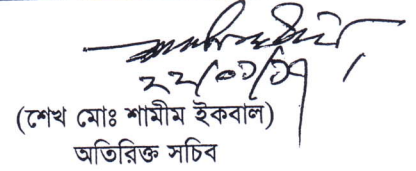 ২২/০১/১৭
(শেখ মোঃ শামীম ইকবাল)
অতিরিক্ত সচিব